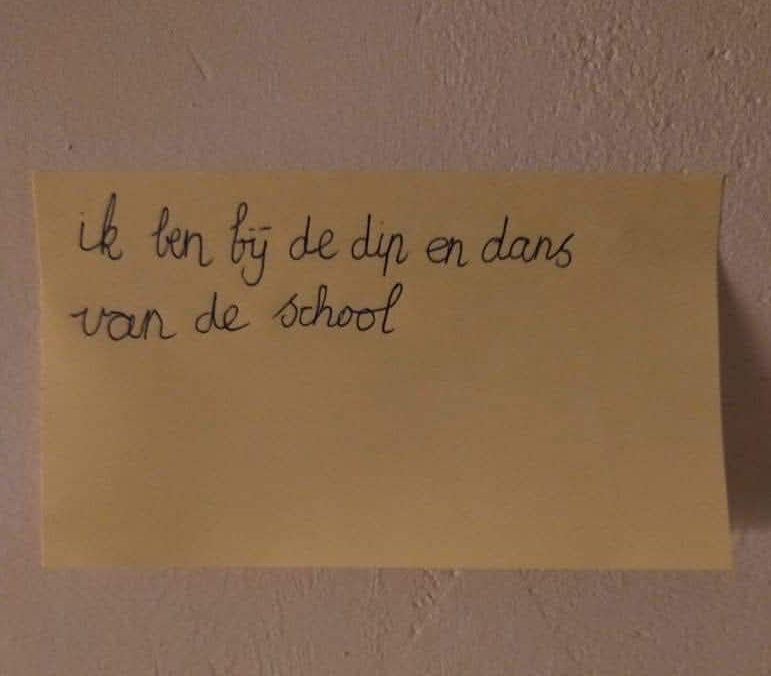 ik ben bij de dip en dans
van de school